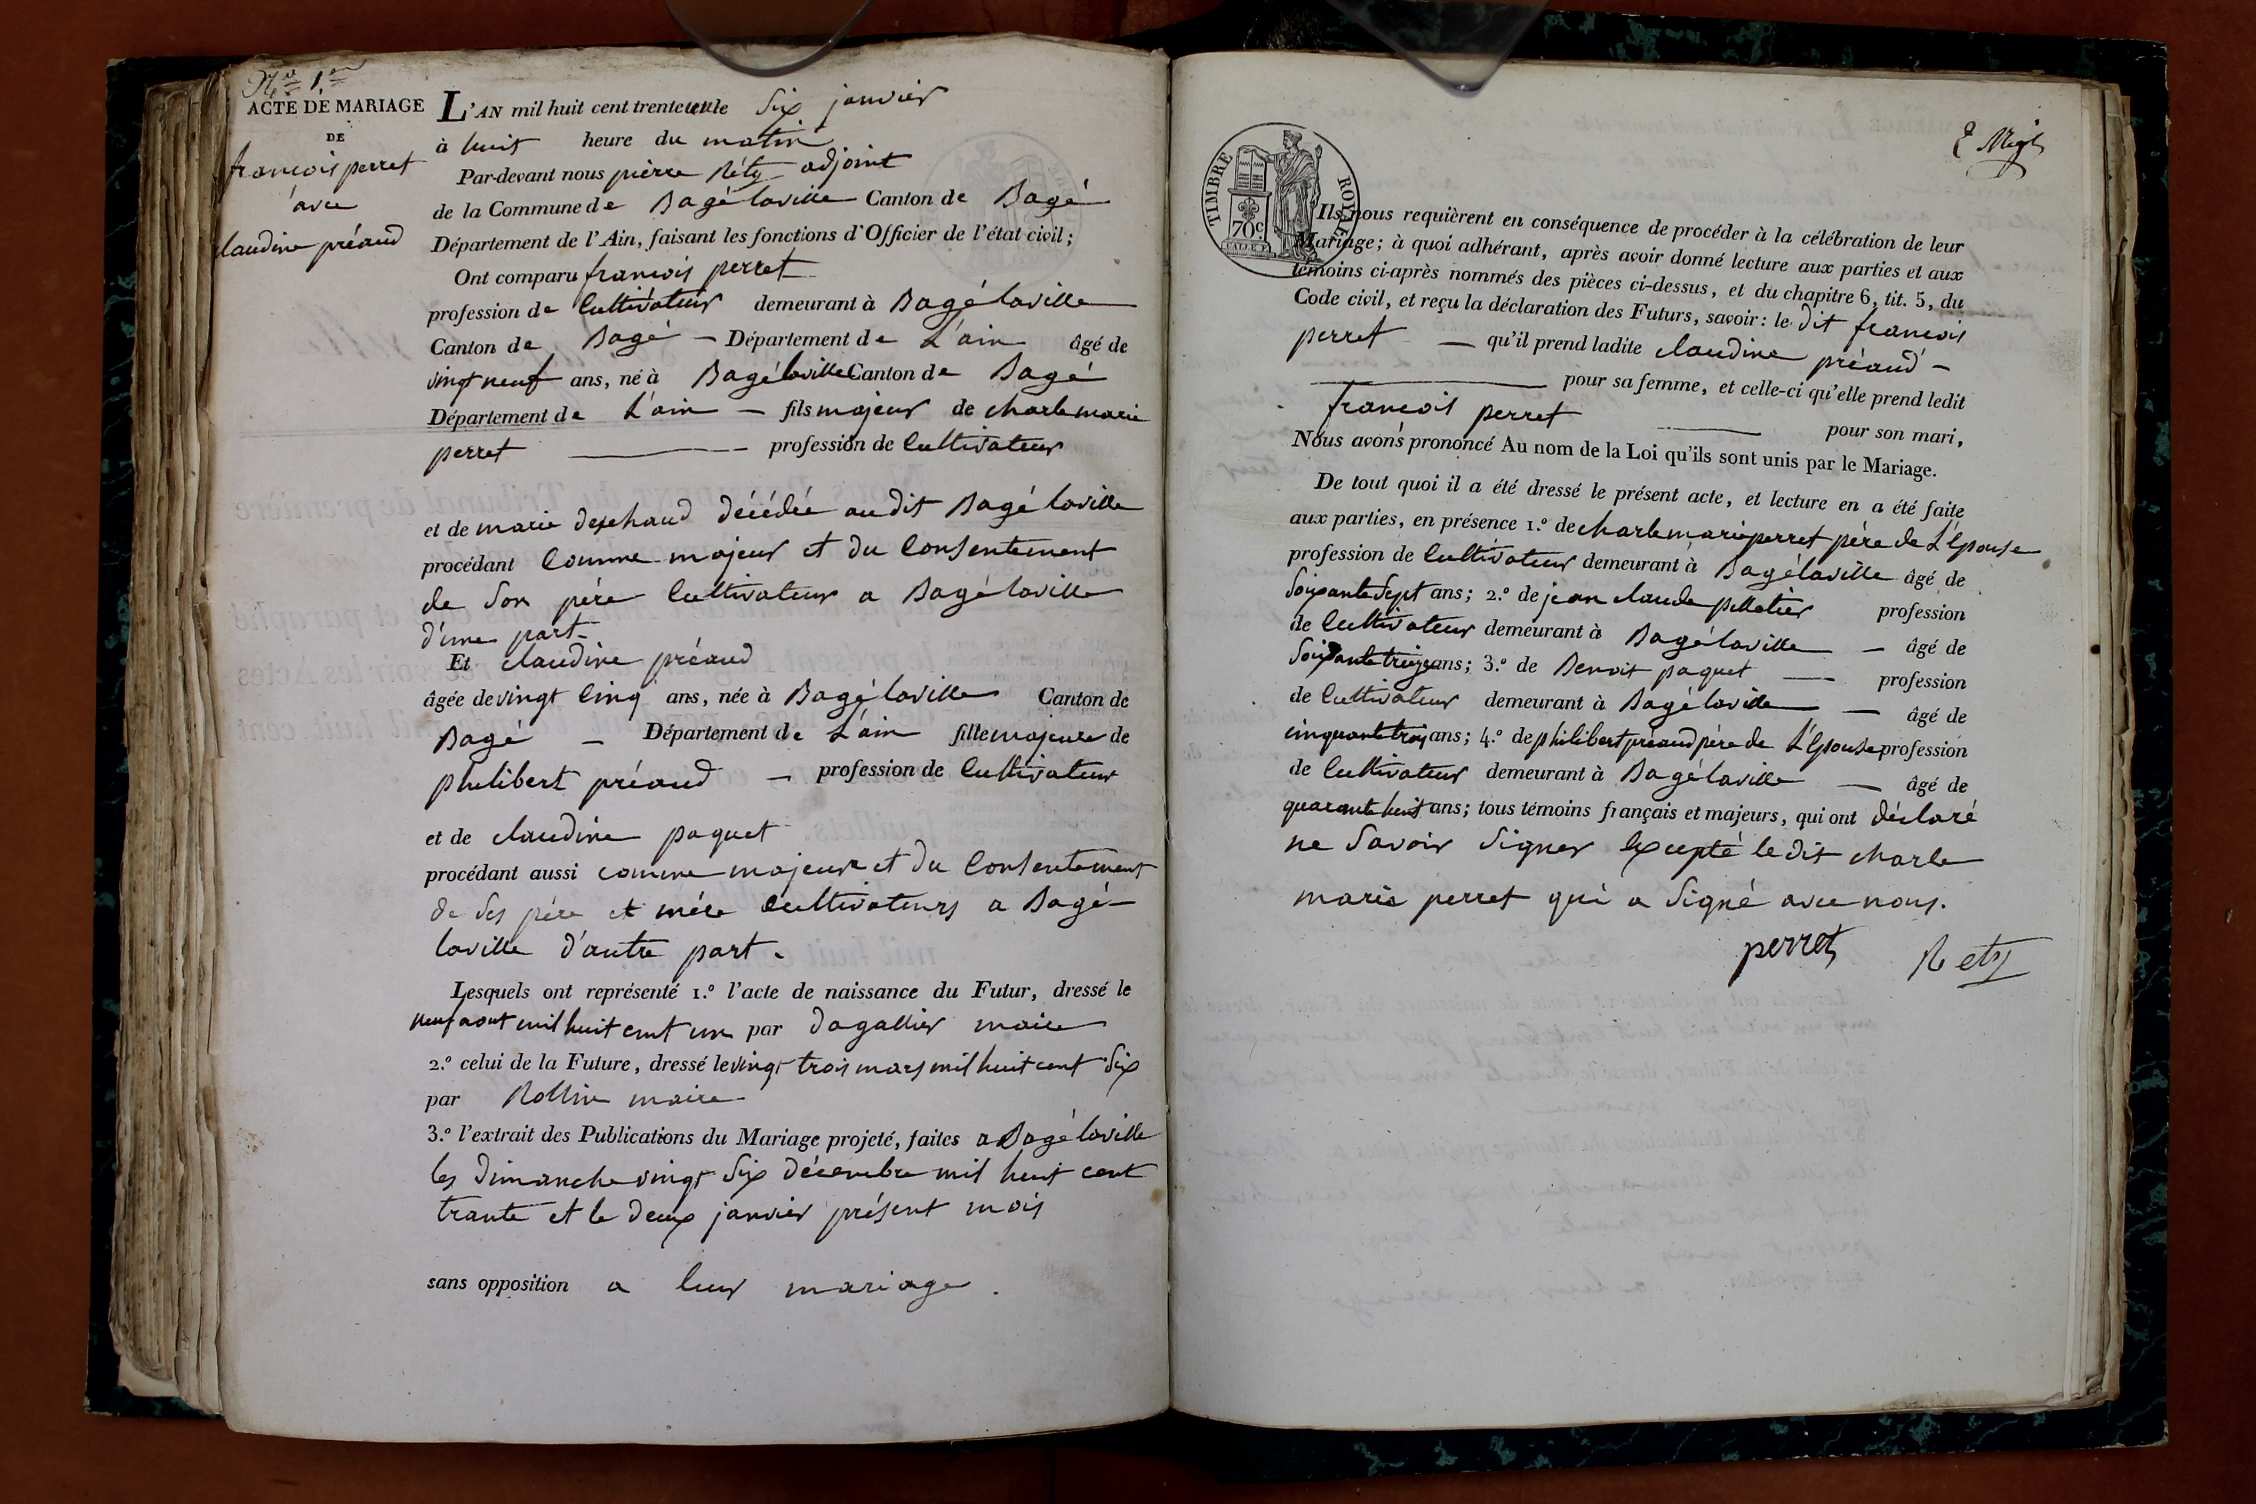 N.o 1.er
ACTE DE MARIAGE
DE
francois perret
avec
claudine préaud
L'AN mil huit cent trente un le Six janvier
à huit heure du matin
Par-devant nous pierre Réty adjoint
de la Commune de Bagé laville Canton de Bagé
Département de l'Ain, faisant les fonctions d'Officier de l'état civil;
Ont comparu francois perret
profession de Cultivateur demeurant à Bagé laville
Canton de Bagé — Département de L'ain âgé de
vingt neuf ans, né à Bagé laville Canton de Bagé
Département de L'ain — fils majeur de charle marie
perret — profession de Cultivateur
et de marie décédée au dit Bagé laville
procédant Comme majeur et du Consentement
de Son père Cultivateur a Bagé laville
d'une part
Et claudine préaud
âgée de vingt Cinq ans, née à Bagé laville Canton de
Bagé — Département de L'ain fille majeure de
philibert préaud — profession de Cultivateur
et de claudine paquet
procédant aussi comme majeure et du Consentement
de Ses père et mére Cultivateurs a Bagé
laville d'autre part.
Lesquels ont représenté 1.º l'acte de naissance du Futur, dressé le
neuf aout mil huit cent un par dagallier maire
2.º celui de la Future, dressé le vingt trois mars mil huit cent Six
par Rollin maire
3.º l'extrait des Publications du Mariage projeté, faites a Bagé laville
les dimanche vingt Six décembre mil huit cent
trante et le deux janvier présent mois
sans opposition a leur mariage.
TIMBRE ROYAL
70c
Ils nous requièrent en conséquence de procéder à la célébration de leur
Mariage; à quoi adhérant, après avoir donné lecture aux parties et aux
témoins ci-après nommés des pièces ci-dessus, et du chapitre 6, tit. 5, du
Code civil, et reçu la déclaration des Futurs, savoir: le dit francois
perret — qu'il prend ladite claudine préaud —
— pour sa femme, et celle-ci qu'elle prend ledit
francois perret — pour son mari,
Nous avons prononcé Au nom de la Loi qu'ils sont unis par le Mariage.
De tout quoi il a été dressé le présent acte, et lecture en a été faite
aux parties, en présence 1.º de charle marie perret père de L'Epouse
profession de Cultivateur demeurant à Bagé laville âgé de
Soixante Sept ans; 2.º de jean claude pelletier profession
de Cultivateur demeurant à Bagé laville — âgé de
Soixante treize ans; 3.º de Benoit paquet — profession
de Cultivateur demeurant à Bagé laville — âgé de
cinquante trois ans; 4.º de philibert préaud père de L'Epouse profession
de Cultivateur demeurant à Bagé laville — âgé de
quarante huit ans; tous témoins français et majeurs, qui ont déclaré
ne Savoir Signer Excepté le dit charle
marie perret qui a Signé avec nous.
perret Rety